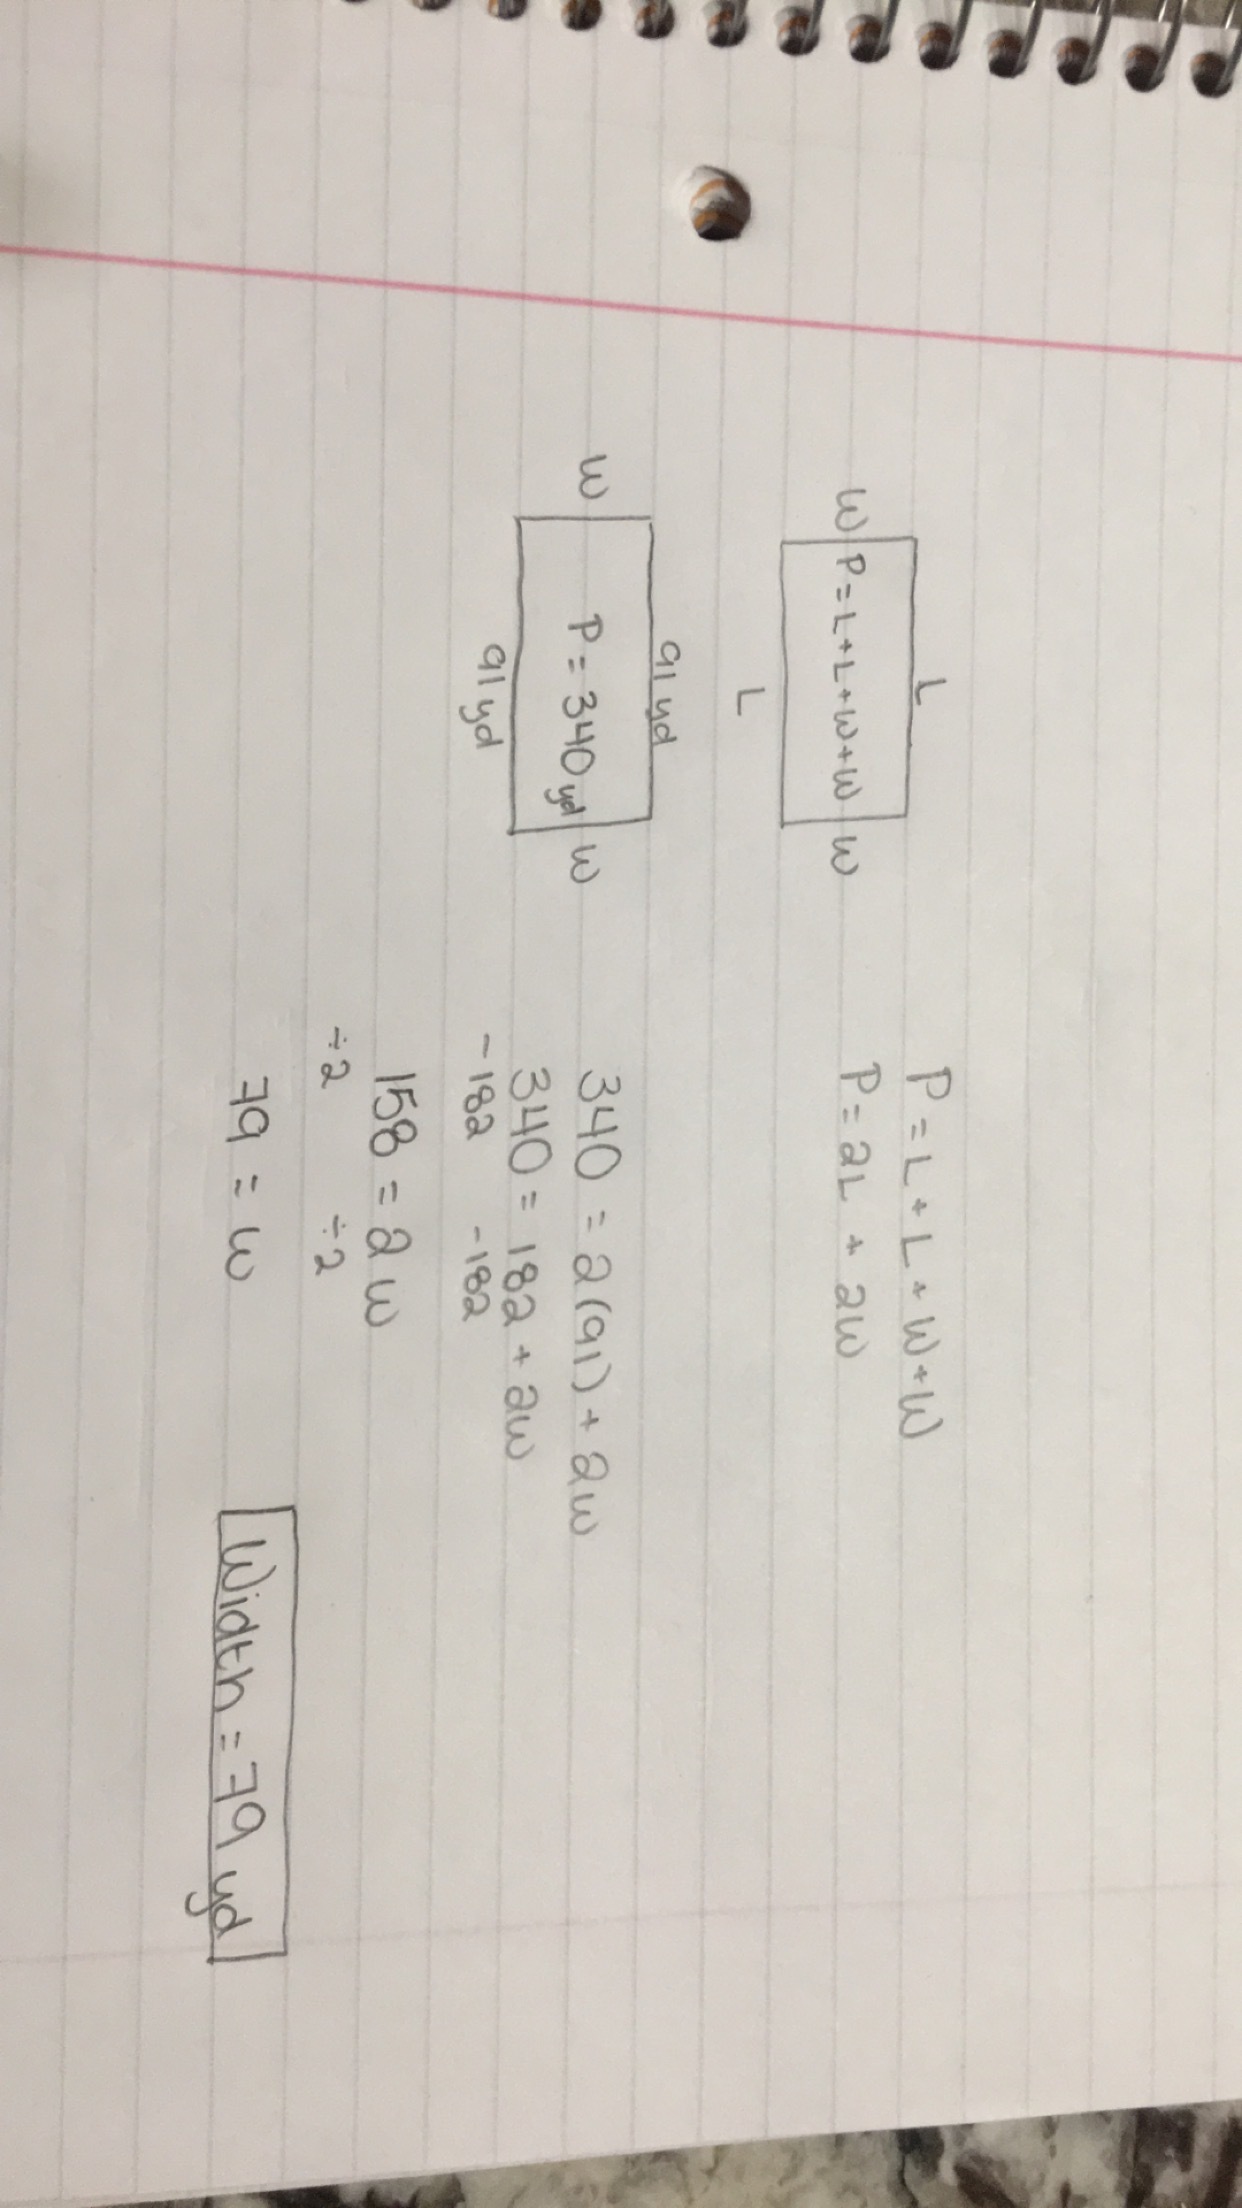 L
W P=L+L+W+W W
L
P=L+L+W+W
P=2L+2W
91 yd
W P=340 yd W
91 yd
340 = 2(91) + 2W
340 = 182 + 2W
-182 -182
158 = 2W
÷2 ÷2
79 = W
Width = 79 yd